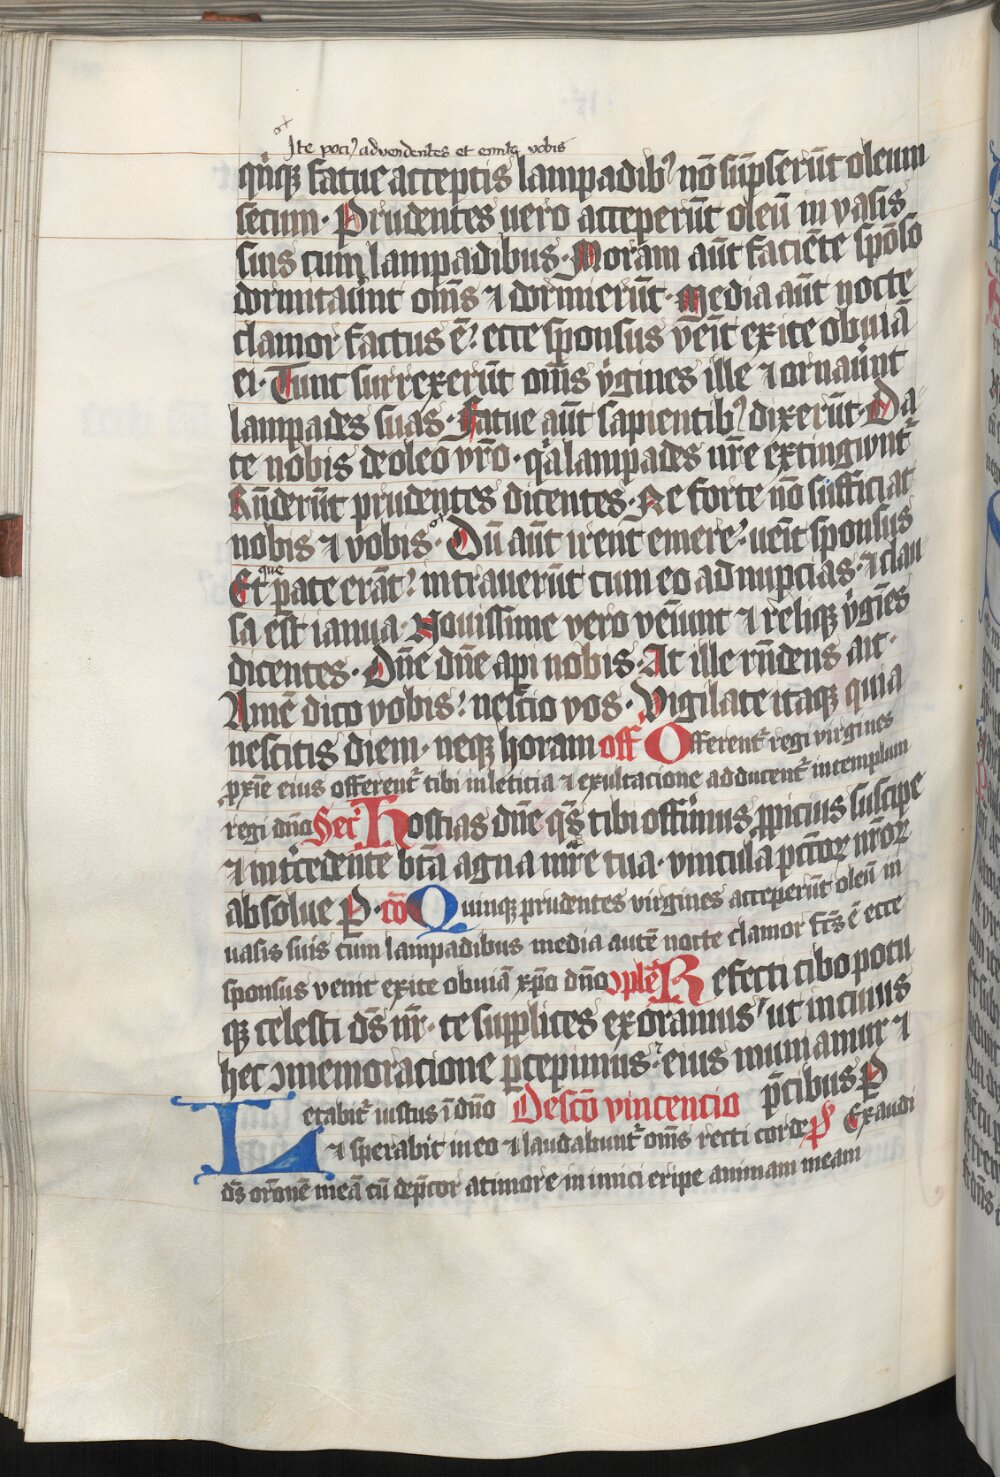 Ite poci⁹ ad vendentes et emite vobis
q̇nq₃ fatue acceptis lampadib⁹ nō sūpserūt oleum
secum · Prudentes uero acceperūt oleū in vasis
suis cum lampadibus · Moram aūt faciēte spōso
dormitaūnt om̄s ⁊ dormierūt · Media aūt nocte
clamor factus ē: ecce sponsus veīt exite obuiā
ei · Tunc surrexerūt om̄s v̇gines ille ⁊ ornaūnt
lampades suas · Fatue aūt sapientib⁹ dixerūt · Da-
te nobis de oleo vr̄o · q̇a lampades nr̄e extingwnt᷑
Rn̄derūt prudentes dicentes · Ne forte nō sufficiat
nobis ⁊ vobis · Dū aūt irent emere: ueīt sponsus
Et que pate erāt: intrauerūt cum eo ad nupcias · ⁊ clau-
sa est ianua · Nouissime vero veīunt ⁊ reliq₃ v̇gīes
dicentes · Dn̄e dn̄e api nobis · At ille rn̄dens ait ·
Amē dico vobis: nescio vos · Vigilate itaq₃ quia
nescitis diem · neq₃ horam off Offerent᷑ regi virgines
ꝓxīe eius offerent᷑ tibi in leticia ⁊ exultacione adducent᷑ in templum
regi dn̄o Sec᷑ Hostias dn̄e q̄s tibi offim̄us ꝓpicius suscipe
⁊ int᷑cedente bt̄a agna mr̄e tua · vincula pctōr nr̄or
absolue P · cō Quinq₃ prudentes virgines acceperūt oleū in
uasis suis cum lampadibus media autē nocte clamor fcs̄ ē ecce
sponsus venit exite obuiā xp̄o dn̄o ꝯplē Refecti cibo potu
q₃ celesti ds̄ nr̄ · te supplices exoramus ut in cuius
hec ꝯmemoracione ꝑcepimus · eius muniamur ⁊
p̄cibus P
Letabit᷑ iustus ī dn̄o De scō vincencio
⁊ sperabit in eo ⁊ laudabunt᷑ om̄s recti corde p̄s Exaudi
ds̄ or̄onē meā cū dep̄cor a timore inimici eripe animam meam